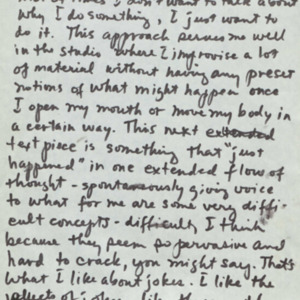 of times I don't want to talk about
why I do something, I just want to
do it. This approach serves me well
in the studio where I improvise a lot
of material without having any preset
notions of what might happen once
I open my mouth or move my body in
a certain way. This next extended
text piece is something that "just
happened" in one extended flow of
thought - spontaneously giving voice
to what for me are some very diffi-
cult concepts - difficult, I think
because they seem so pervasive and
hard to crack, you might say. That's
what I like about jokes. I like the
of jokes